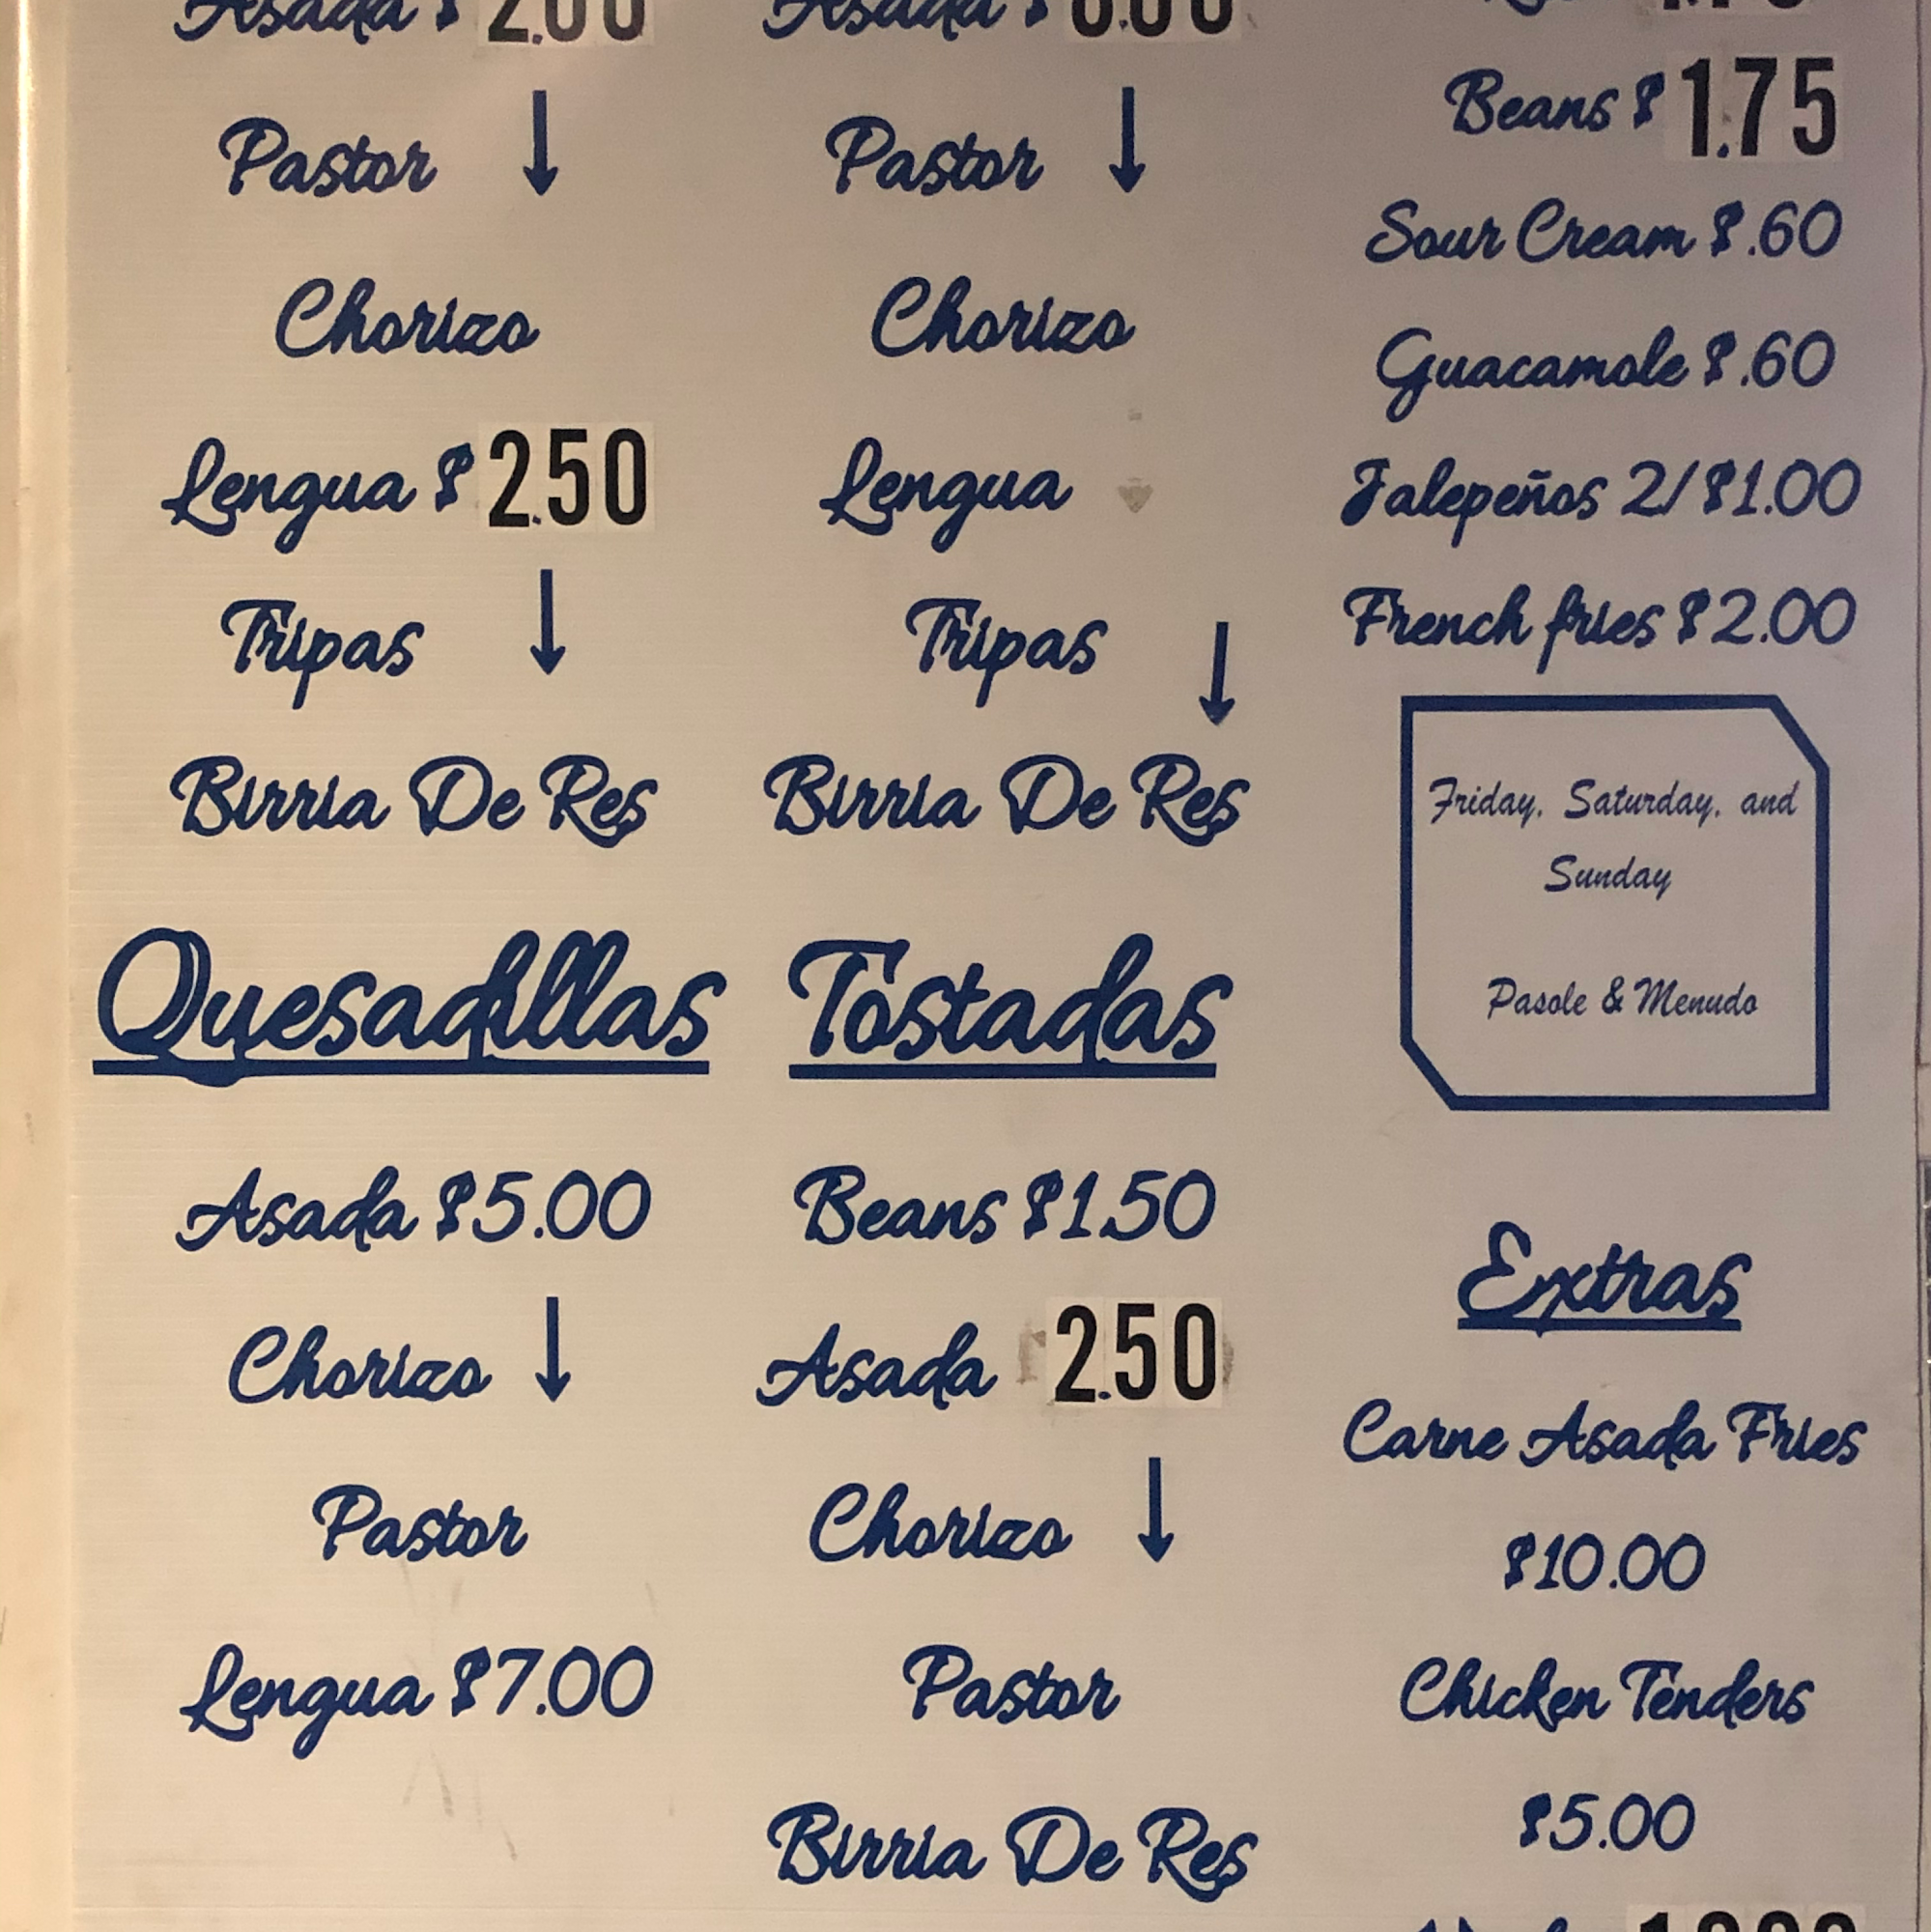 Asada $ 2.00
Pastor ↓
Chorizo
Lengua $ 2.50
Tripas ↓
Birria De Res
Quesadillas
Asada $5.00
Chorizo ↓
Pastor
Lengua $7.00
Asada $
Pastor ↓
Chorizo
Lengua
Tripas ↓
Birria De Res
Tostadas
Beans $1.50
Asada 2.50
Chorizo ↓
Pastor
Birria De Res
Beans $ 1.75
Sour Cream $.60
Guacamole $.60
Jalepeños 2/$1.00
French fries $2.00
Friday, Saturday, and
Sunday
Pasole & Menudo
Extras
Carne Asada Fries
$10.00
Chicken Tenders
$5.00